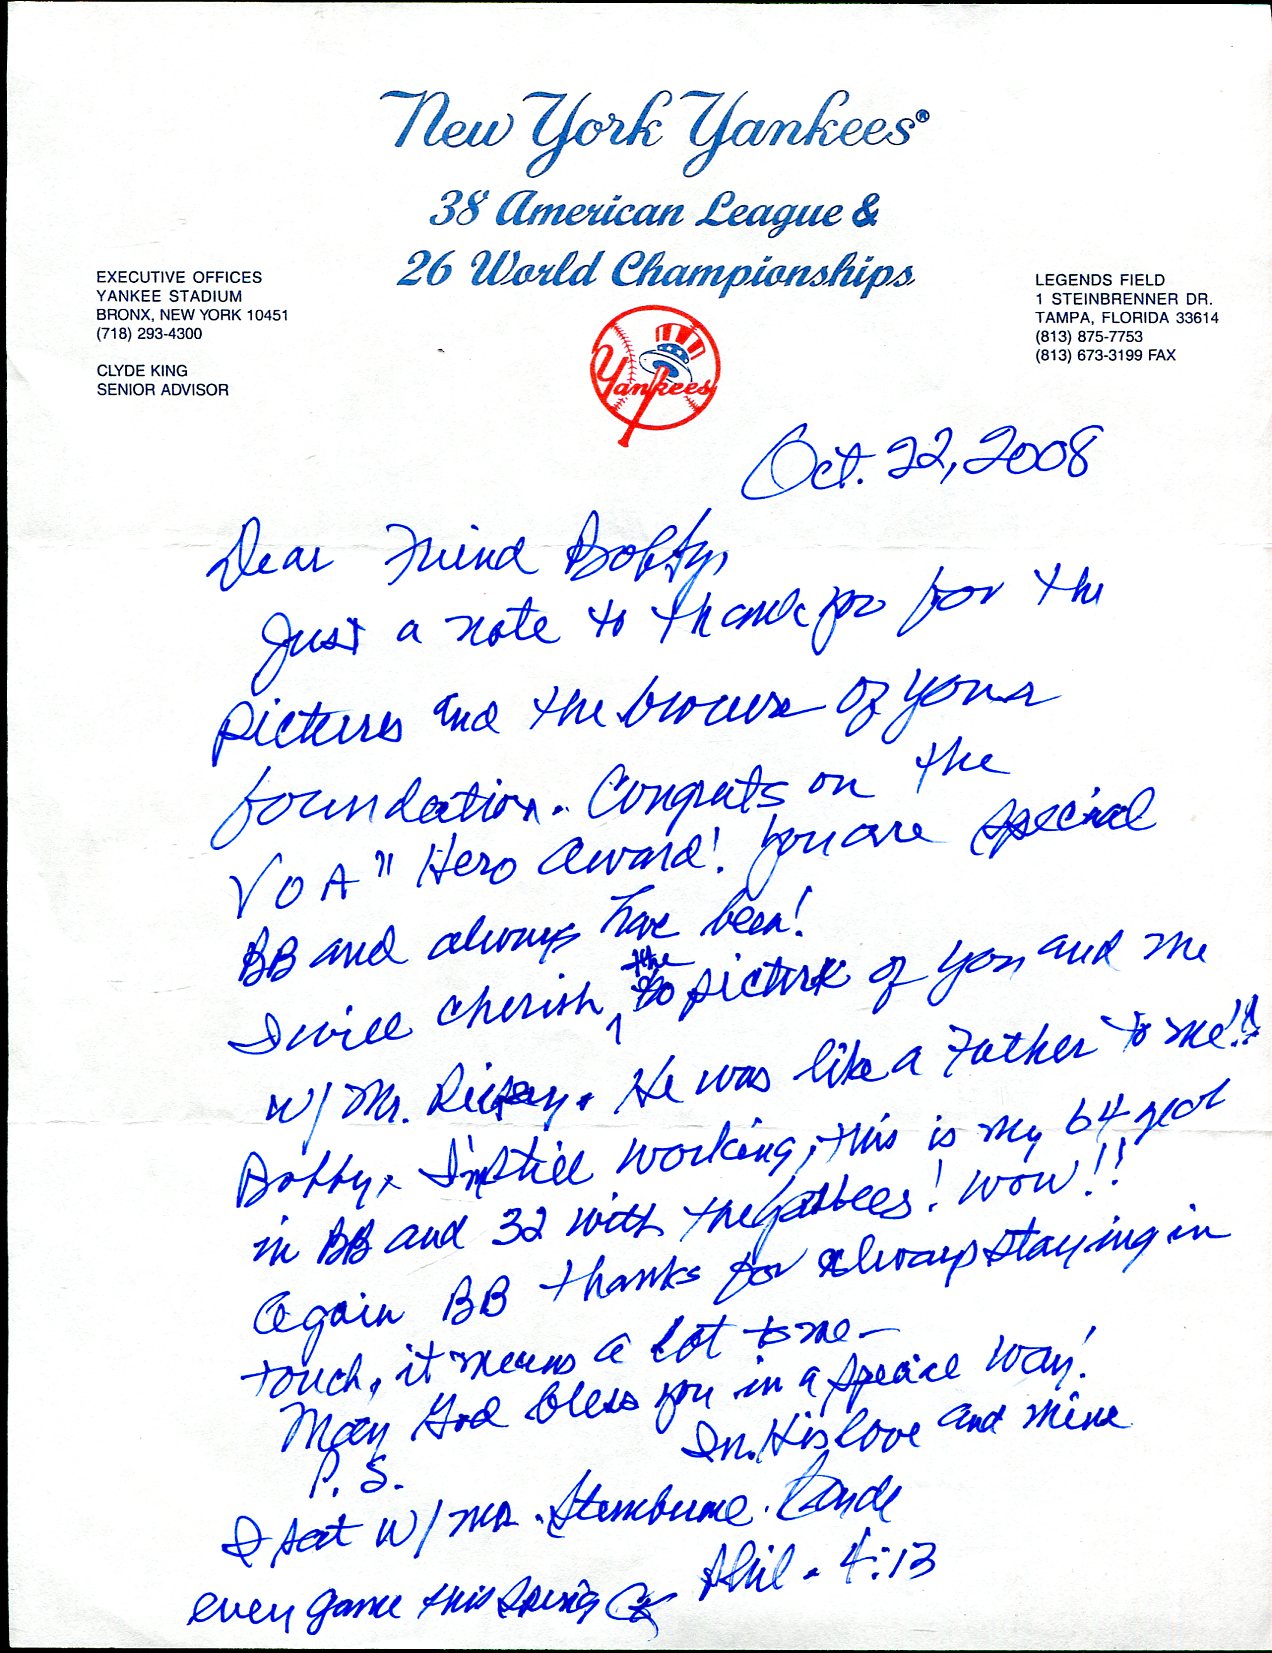 New York Yankees®
38 American League &
26 World Championships
EXECUTIVE OFFICES
YANKEE STADIUM
BRONX, NEW YORK 10451
(718) 293-4300
CLYDE KING
SENIOR ADVISOR
LEGENDS FIELD
1 STEINBRENNER DR.
TAMPA, FLORIDA 33614
(813) 875-7753
(813) 673-3199 FAX
Yankees
Oct. 22, 2008
Dear Friend Bobby,
Just a note to thank you for the
pictures and the of your
foundation. Congrats on the
VOA" Hero Award! You are special
BB and always have been!
I will cherish the picture of you and me
w/ Mr. Rickey. He was like a Father to me!!
Bobby, I'm still working, this is my 64 year
in BB and 32 with the Yankees! Wow!!
Again BB thanks for always staying in
touch, it means a lot to me—
May God bless you in a special way!
In His love and mine
P.S.
I sat w/ Mr. Steinbrenner Clyde
every game this Spring CK Phil. 4:13